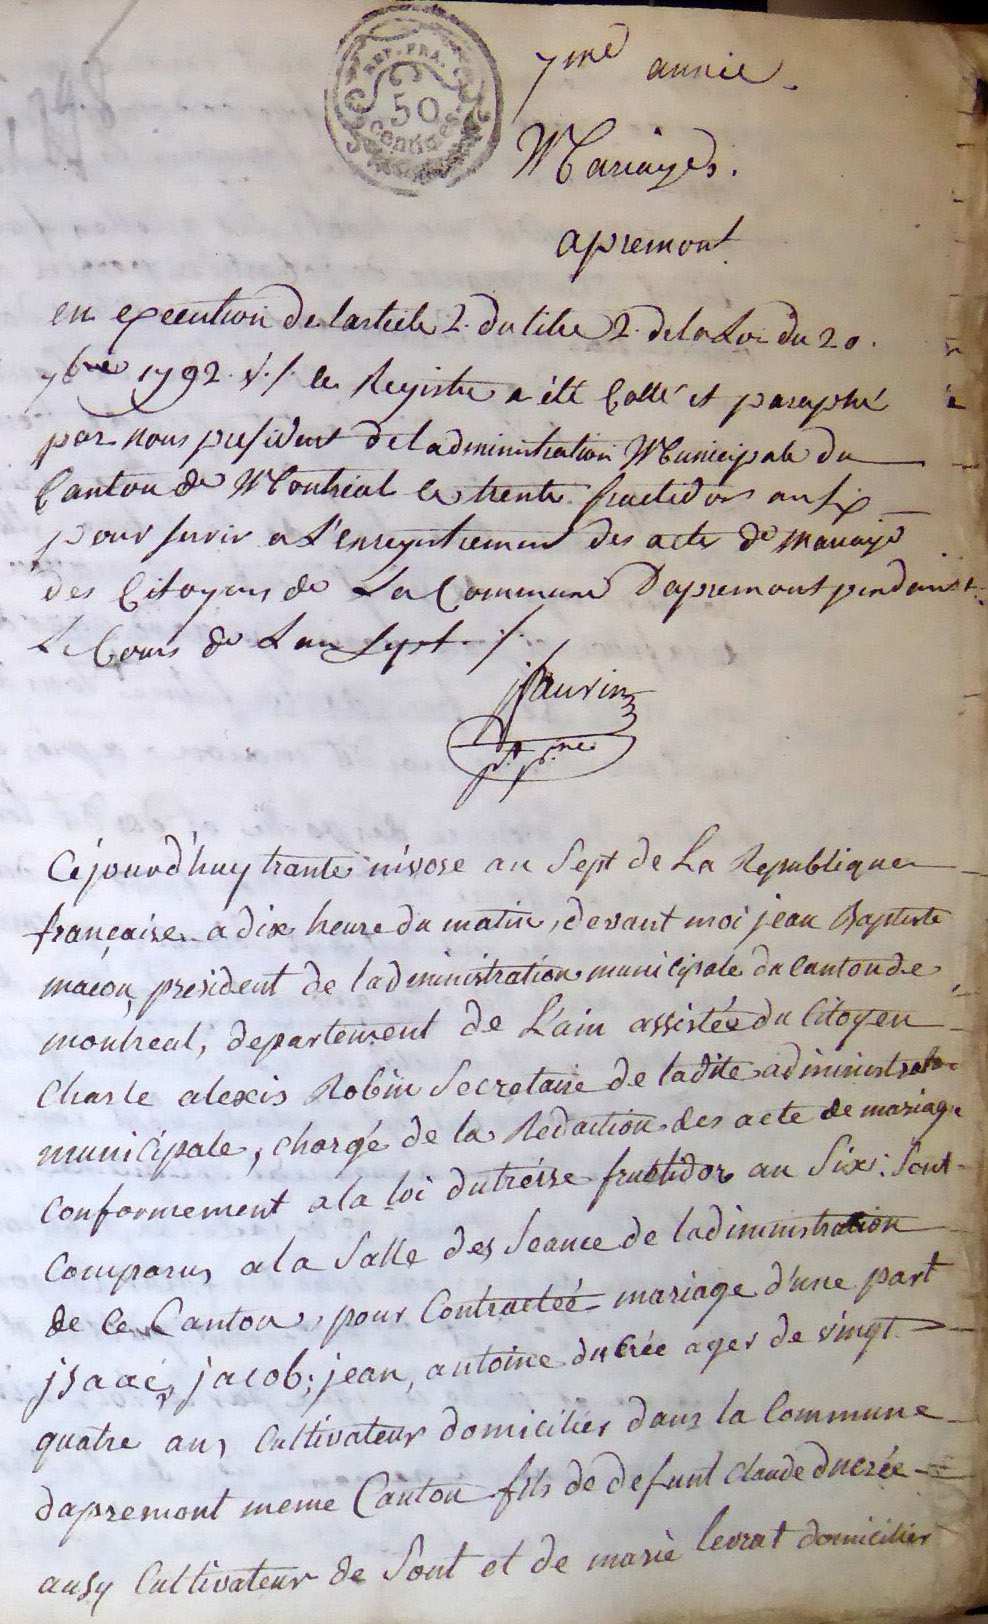 REP. FRA.
50
centimes.
7me année.
Mariages.
apremont
en execution de larticle 2. du titre 2. de la Loi du 20.
7bre 1792 le Registre a été Cotté et paraphé
par nous president de ladministration Municipale du
Canton de Montreal le trente fructidor an six
pour servir a L'enregistrement des acte de mariage
des Citoyens de La Commune Dapremont pendant
Le Cours de Lan Sept. /.
jfaurin
pdt
Cejourd'huy trante nivose an Sept de La Republique
française a dix heure du matin, devant moi jean Baptiste
maçon, president de ladministration municipale du Canton de
montreal, departement de L'ain assistée du Citoyen
Charle alexis Robin Secretaire de ladite administration
municipale, chargé de la Redaction des acte de mariage
conformement a la loi du treize fructidor an Six: Sont
Comparus a la Salle des Seance de ladiministration
de Ce Canton, pour Contractéé mariage d'une part
jsaac, jacob, jean, antoine ducrée ager de vingt
quatre ans Cultivateur domicilier dans la Commune
dapremont meme Canton fils de defunt Claude ducrée
ausy Cultivateur de Sont et de marie levrat domicilier